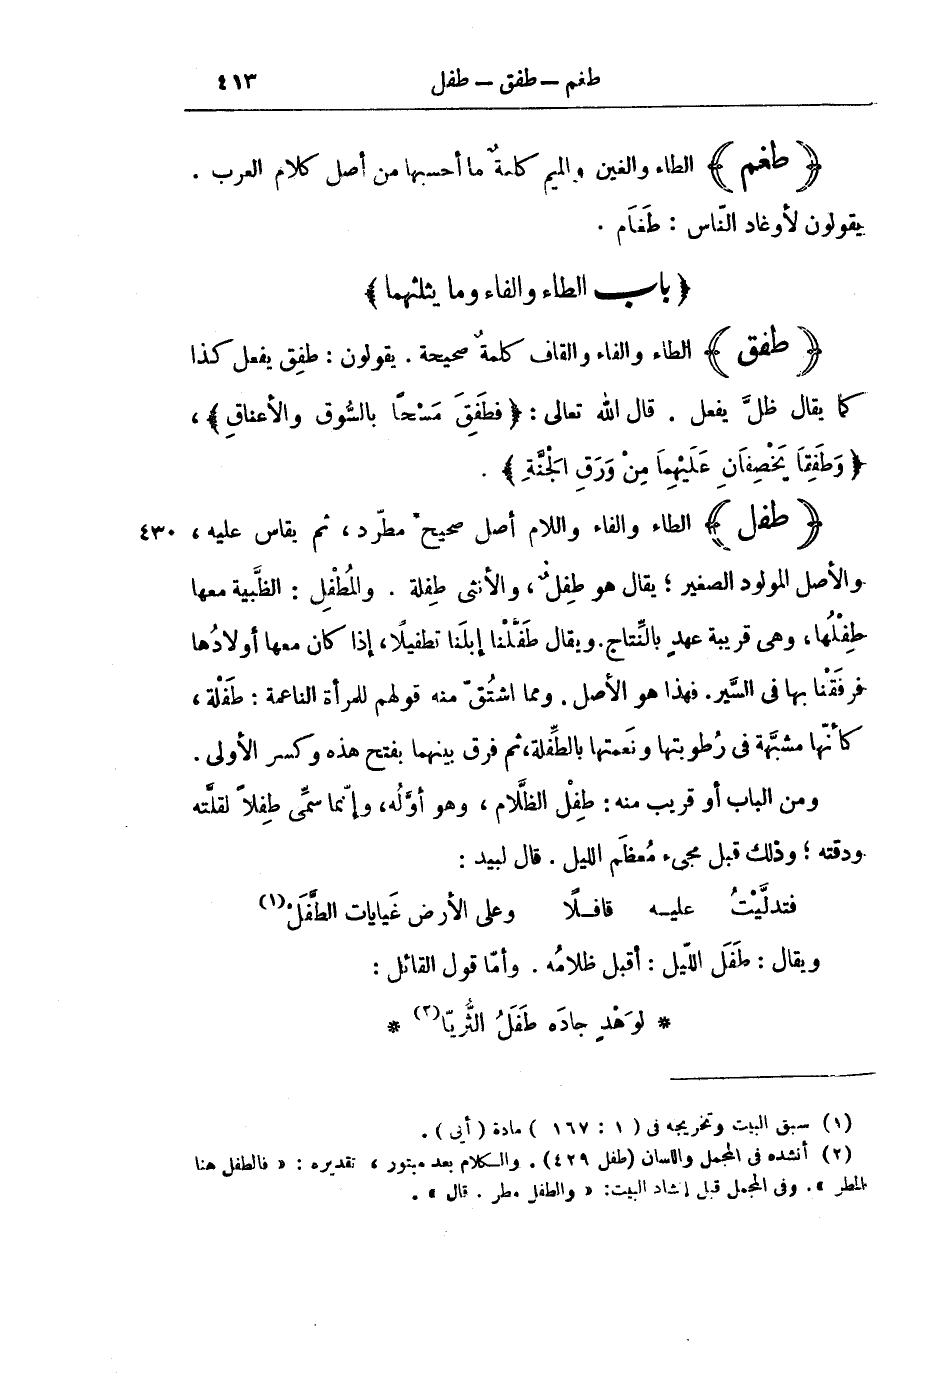 طغم – طفق – طفل ٤١٣
﴿ طغم ﴾ الطاء والغين والميم كلمةٌ ما أحسبها من أصل كلام العرب .
يقولون لأوغاد النّاس : طَغَام .
﴿ باب الطاء والفاء وما يثلثهما ﴾
﴿ طفق ﴾ الطاء والفاء والقاف كلمةٌ صحيحة . يقولون : طفِق يفعل كذا
كما يقال ظلَّ يفعل . قال الله تعالى : ﴿ فطَفِقَ مَسْحًا بالسُّوق والأعناقِ ﴾ ،
﴿ وَطَفِقَا يَخْصِفَانِ عَلَيْهِمَا مِنْ وَرَقِ الْجَنَّةِ ﴾ .
﴿ طفل ﴾ الطاء والفاء واللام أصل صحيح مطّرد ، ثم يقاس عليه ، ٤٣٠
والأصل المولود الصغير ؛ يقال هو طِفلٌ ، والأنثى طِفلة . والمُطْفِل : الظَّبية معها
طِفْلُها ، وهى قريبة عهدٍ بالنِّتاج . ويقال طَفَّلْنا إبلَنا تطفيلًا ، إذا كان معها أولادُها
فرفَقْنا بها فى السَّير . فهذا هو الأصل . ومما اشتُقّ منه قولهم للمرأة الناعمة : طَفْلة ،
كأنّها مشبَّهة فى رُطوبتها ونَعمتها بالطِّفلة ، ثم فرق بينهما بفتح هذه وكسر الأولى .
ومن الباب أو قريب منه : طِفْل الظَّلام ، وهو أوَّلُه ، وإنّما سمِّى طِفلاً لقلَّته
ودقته ؛ وذلك قبل مجىء مُعظَم الليل . قال لبيد :
فتدلَّيْتُ عليه قافلًا وعلى الأرض غَيايات الطَّفَلْ (١)
ويقال : طَفَل اللّيل : أقبل ظلامُه . وأمّا قول القائل :
* لوَهْدٍ جادَه طَفَلُ الثُّريّا (٢) *
(١) سبق البيت وتخريجه فى ( ١ : ١٦٧ ) مادة ( أيى ) .
(٢) أنشده فى المجمل واللسان (طفل ٤٢٩) . والكلام بعد مبتور ، تقديره : « فالطفل هنا
المطر » . وفى المجمل قبل إنشاد البيت : « والطفل مطر . قال » .